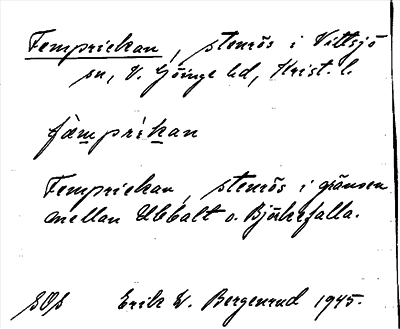 Femprickan, stenrös i Vittsjö
sn, V. Göinge hd, Krist. l.
fämprikan
Femprickan, stenrös i gränsen
mellan Ubbalt o. Björkefalla.
SOS Erik W. Bergenrud 1945.